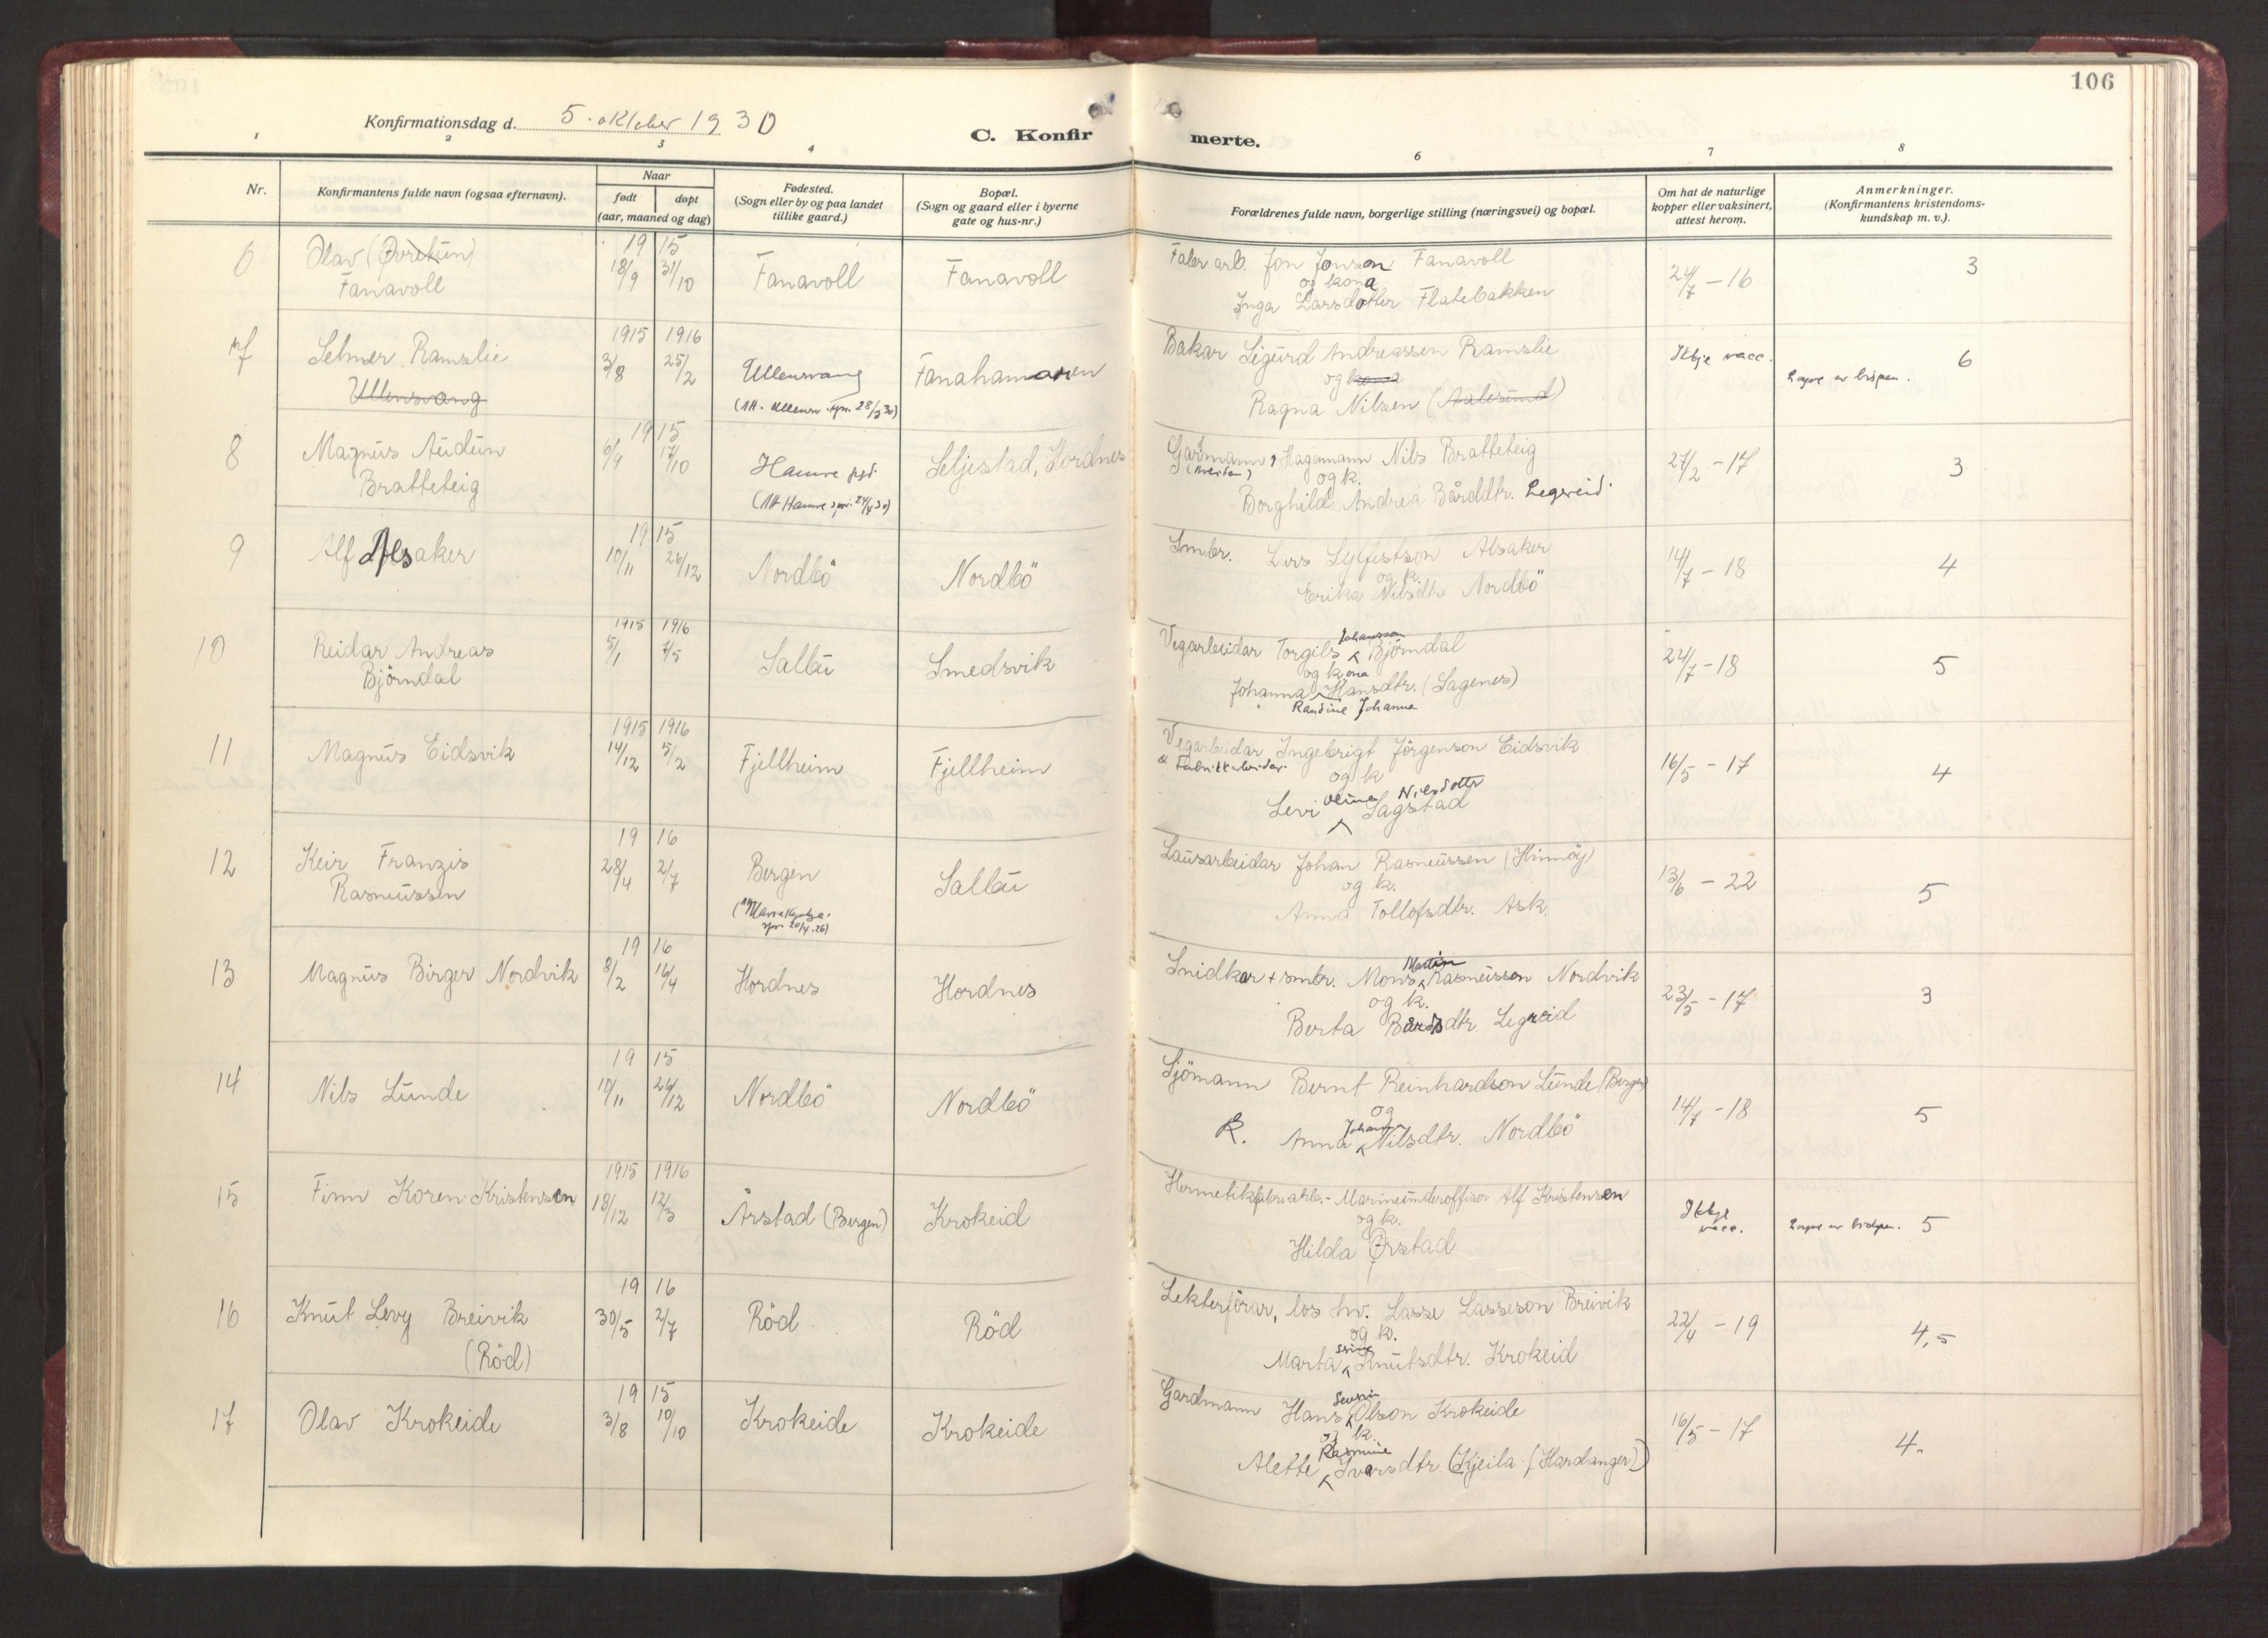 106
Konfirmationsdag d. 5. oktober 1930
C. Konfir merte.
1 2 3 4 6 7 8
Nr.
Konfirmantens fulde navn (ogsaa efternavn).
Naar
født døpt
(aar, maaned og dag)
Fødested.
(Sogn eller by og paa landet
tillike gaard.)
Bopæl.
(Sogn og gaard eller i byerne
gate og hus-nr.)
Forældrenes fulde navn, borgerlige stilling (næringsvei) og bopæl.
Om hat de naturlige
kopper eller vaksinert,
attest herom.
Anmerkninger.
(Konfirmantens kristendoms-
kundskap m. v.).
6 Olav (Øvretun)
Fanavoll
19 15
18/9 31/10
Fanavoll Fanavoll
Jon Jonson Fanavoll
og kona
Inga Larsdotter Flatebakken
24/7 - 16 3
7 Selmer Ramslie
Ullensvang
1915 1916
3/8 25/2
Ullensvang
Fanahamaren
Bakar Sigurd Andreassen Ramslie
og kona
Ragna Nilsen (Aalesund)
Ikkje vacc. Løyve av bispen. 6
8 Magnus Audun
Bratteteig
19 15
6/9 17/10
Hamre
Seljestad, Hordnes
Gardmann, Hagamann Nils Bratteteig
og k.
Borghild Andrea Bårddtr. Legreid
27/2 - 17 3
9 Alf Alsaker
19 15
10/11 26/12
Nordbö Nordbö
Smbr. Lars Sylfestson Alsaker
og k.
Erika Nilsdtr Nordbö
14/7 - 18 4
10 Reidar Andreas
Björndal
1915 1916
5/1 7/5
Sallu Smedsvik
Vegarbeidar Torgils Johansson Björndal
og kona
Johanna Hansdtr. (Sagenes)
Randine Johanna
24/7 - 18 5
11 Magnus Eidsvik
1915 1916
14/12 5/2
Fjellheim Fjellheim
Vegarbeidar Ingebrigt Jörgenson Eidsvik
& Fabrikkarbeidar.
og k
Levi Oline Nilsdottr Sagstad
16/5 - 17 4
12 Keir Franzis
Rasmussen
19 16
28/4 2/7
Bergen
Sallu
Lausarbeidar Johan Rasmussen (Hinnöy)
og k.
Anna Tollofsdtr. Ask.
13/6 - 22 5
13 Magnus Birger Nordvik
19 16
8/2 16/4
Hordnes Hordnes
Snidkar + smbr. Mons Martin Rasmussen Nordvik
og k.
Berta Bårdsdtr Legreid
23/5 - 17 3
14 Nils Lunde
19 15
10/11 26/12
Nordbö Nordbö
Sjömann Bernt Reinhardson Lunde (Bergen)
og
k. Anna Johanna Nilsdtr. Nordbö
14/7 - 18 5
15 Finn Koren Kristensen
1915 1916
18/12 12/3
Årstad (Bergen) Krokeid
Marineunderoffiser Alf Kristensen
og k.
Hilda Ørstad
Ikkje
vacc.
Løyve av bispen. 5
16 Knut Levy Breivik
(Röd)
19 16
30/5 2/7
Röd Röd
Lekterförar, los hv. Lasse Lasseson Breivik
og k.
Marta Knutsdtr. Krokeid
22/4 - 19 4,5
17 Olav Krokeide
19 15
3/8 10/10
Krokeide Krokeide
Gardmann Hans Severin Olson Krokeide
og k.
Alette Rasmine Ivarsdtr. (Kjeila (Hardanger))
16/5 - 17 4-